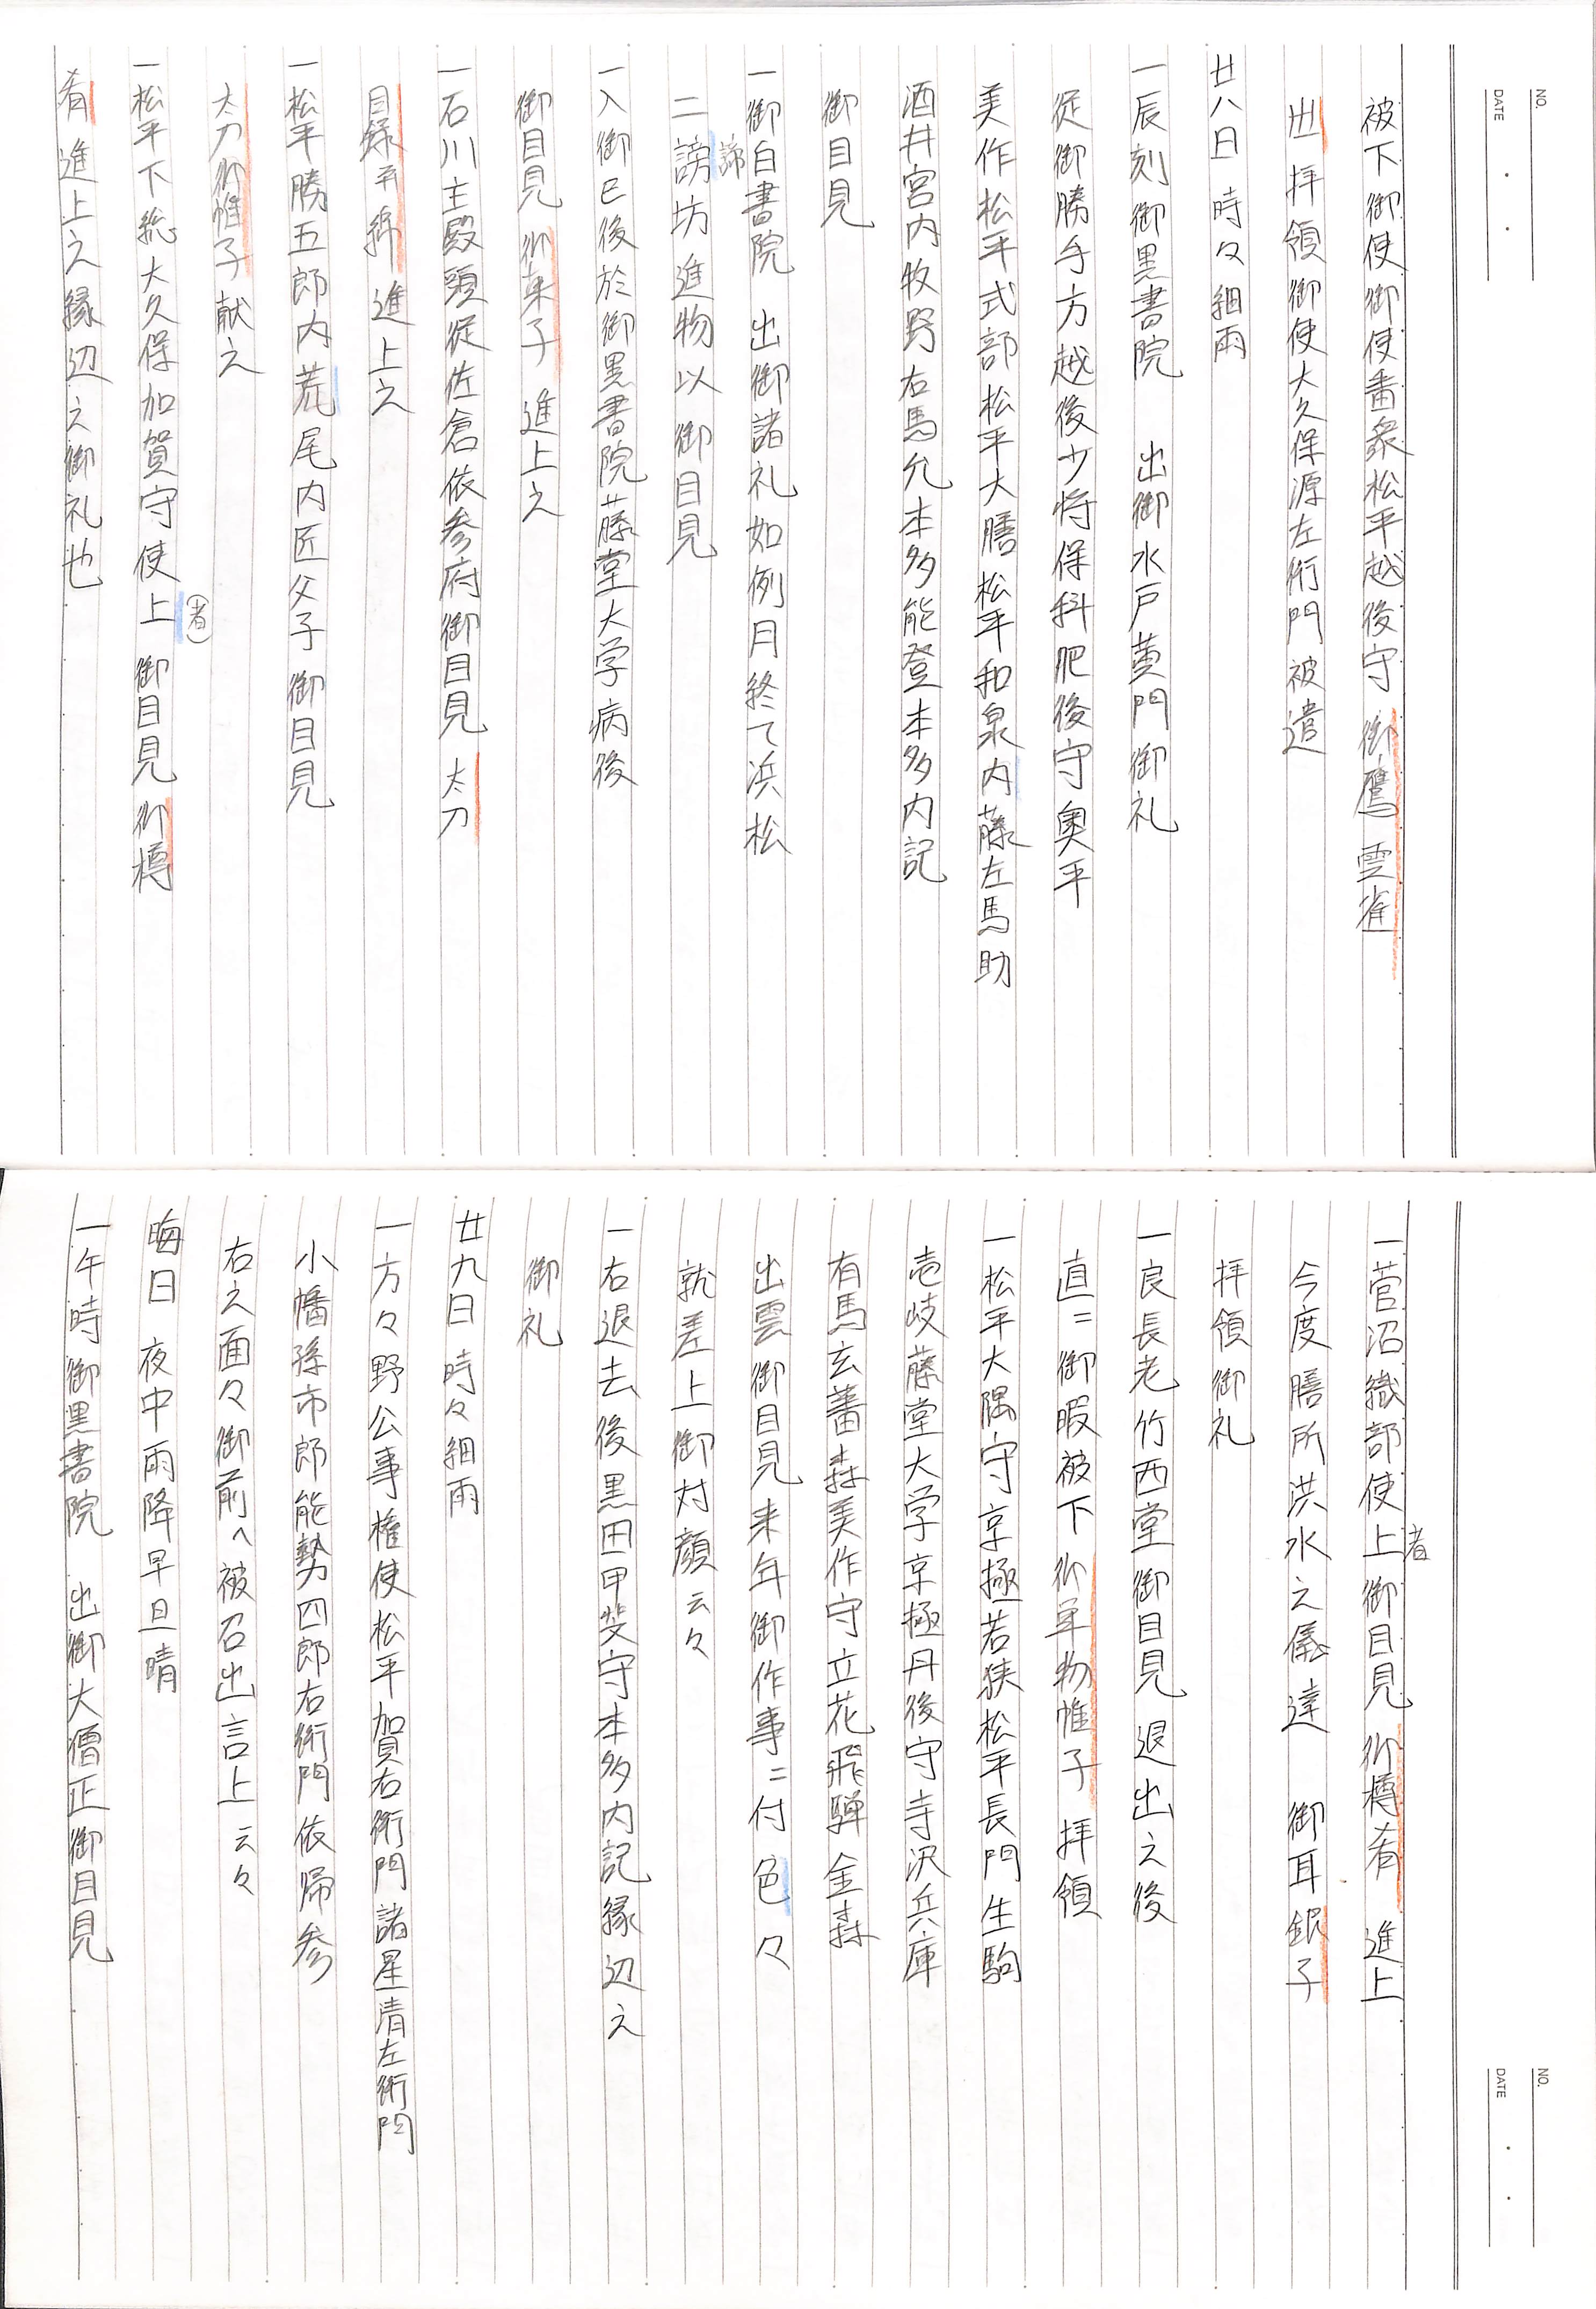 NO.
DATE
被下御使御使番衆松平越後守 御鷹 雲雀
丗 拝領御使大久保源左衛門被遣
廿八日 時々細雨
一辰刻御黒書院 出御水戸黄門御礼
従御勝手方越後少将保科肥後守奥平
美作松平式部松平大膳松平和泉内藤左馬助
酒井宮内牧野右馬允本多能登本多内記
御目見
一御白書院 出御諸礼如例月終て浜松
諦
二謗坊進物以御目見
一入御已後於御黒書院藤堂大学病後
御目見 御菓子 進上之
一石川主殿頭従佐倉依参府御目見 太刀
目録平綿進上之
一松平勝五郎内荒尾内匠父子御目見
太刀御帷子献之
(者)
一松平下総大久保加賀守使上 御目見 御樽
肴進上之縁辺之御礼也
NO.
DATE
者
一菅沼織部使上御目見御樽肴 進上
今度膳所洪水之儀達 御耳銀子
拝領御礼
一良長老竹西堂御目見退出之後
直ニ御暇被下御単物帷子拝領
一松平大隅守京極若狭松平長門生駒
壱岐藤堂大学京極丹後守寺沢兵庫
有馬玄蕃森美作守立花飛騨金森
出雲御目見来年御作事ニ付色々
就差上御対顔云々
一右退去後黒田甲斐守本多内記縁辺之
御礼
廿九日時々細雨
一方々野公事権使松平賀右衛門諸星清左衛門
小幡孫市郎能勢四郎右衛門依帰参
右之面々御前へ被召出言上云々
晦日夜中雨降早旦晴
一午時御黒書院 出御大僧正御目見